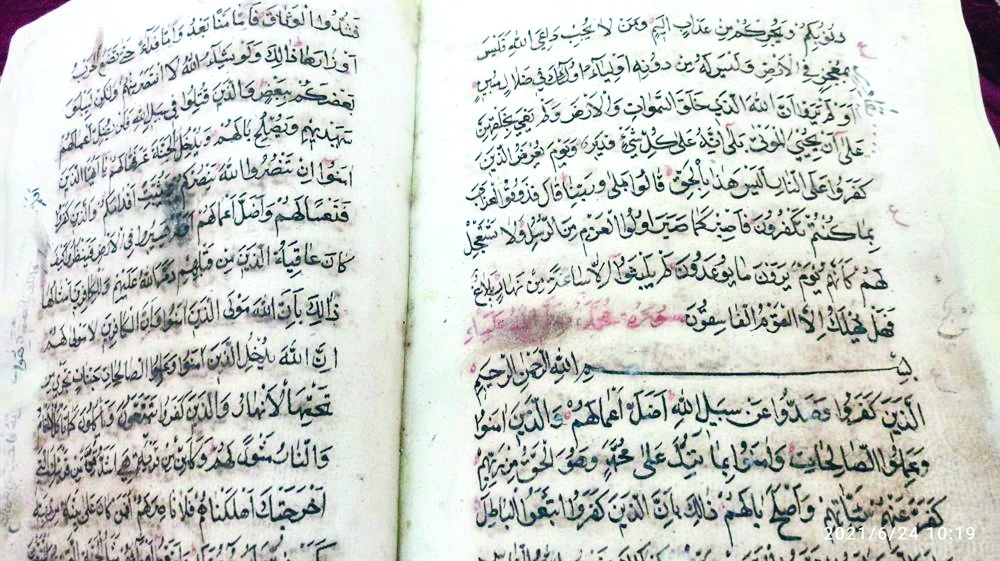 ذنوبكم ويجركم من عذاب اليم ومن لا يجب داعي الله فليس
بمعجز في الارض وليس له من دونه اولياء اولئك في ضلال مبين
اولم يروا ان الله الذي خلق السموات والارض ولم يعي بخلقهن
على ان يحيي الموتى بلى انه على كل شيء قدير ويوم يعرض الذين
كفروا على النار اليس هذا بالحق قالوا بلى وربنا قال فذوقوا العذاب
بما كنتم تكفرون فاصبر كما صبر اولوا العزم من الرسل ولا تستعجل
لهم كانهم يوم يرون ما يوعدون لم يلبثوا الا ساعة من نهار بلاغ
فهل يهلك الا القوم الفاسقون سورة محمد صلى الله عليه
بسم الله الرحمن الرحيم
الذين كفروا وصدوا عن سبيل الله اضل اعمالهم والذين امنوا
وعملوا الصالحات وامنوا بما نزل على محمد وهو الحق من ربهم
كفر عنهم سيئاتهم واصلح بالهم ذلك بان الذين كفروا اتبعوا الباطل
فشدوا الوثاق فاما منا بعد واما فداء حتى تضع الحرب
اوزارها ذلك ولو يشاء الله لا انتصر منهم ولكن ليبلو
بعضكم ببعض والذين قتلوا في سبيل الله فلن يضل اعمالهم
سيهديهم ويصلح بالهم ويدخلهم الجنة عرفها لهم يا ايها الذين
امنوا ان تنصروا الله ينصركم ويثبت اقدامكم والذين كفروا
فتعسا لهم واضل اعمالهم يسيروا في الارض فينظروا كيف
كان عاقبة الذين من قبلهم دمر الله عليهم وللكافرين امثالها
ذلك بان الله مولى الذين امنوا وان الكافرين لا مولى لهم
ان الله يدخل الذين امنوا وعملوا الصالحات جنات تجري من
تحتها الانهار والذين كفروا يتمتعون وياكلون كما تاكل الانعام
والنار مثوى لهم وكاين من قرية هي اشد قوة من قريتك التي
اخرجتك اهلكناهم فلا ناصر لهم افمن كان على بينة من ربه
2021/6/24 10:19